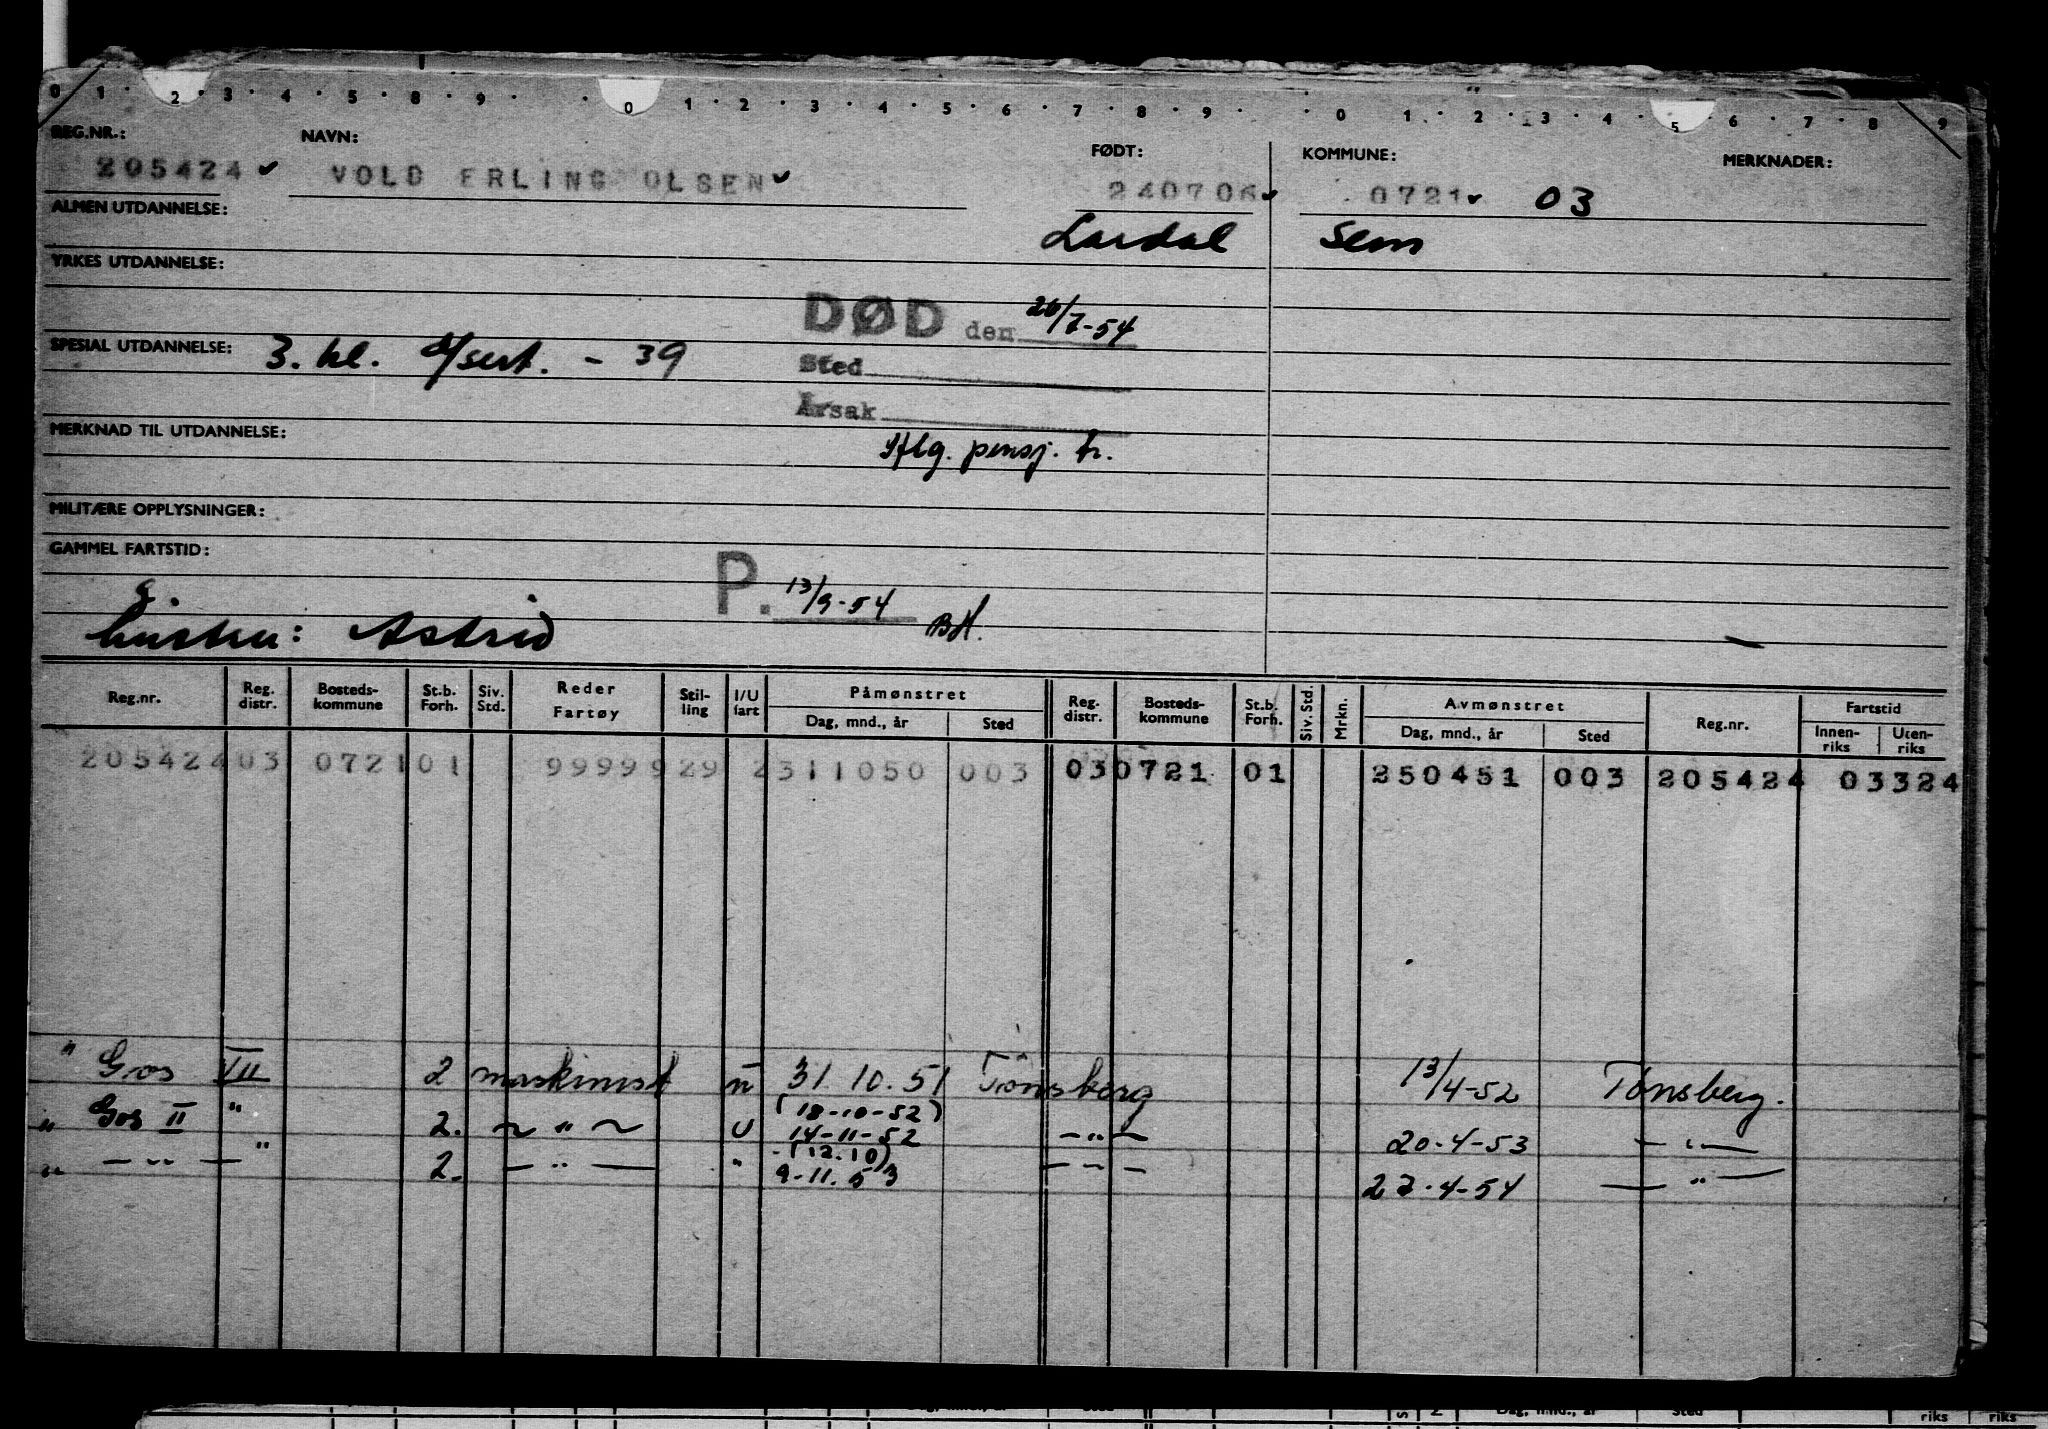 0 1 · 2 · 3 · 4 · 5 · 8 · 9 · · 0 1 · 2 · 3 · 4 · 5 · 6 · 7 · 8 · 9 · · 0 1 · 2 · 3 · 4 · 5 · 6 · 7 · 8 9
REG.NR.: NAVN: FØDT: KOMMUNE: MERKNADER:
205424 VOLD ERLING OLSEN 240706 0721 03
ALMEN UTDANNELSE: Lardal Sem
YRKES UTDANNELSE:
DØD den 26/7-54
SPESIAL UTDANNELSE: 3. kl. d/sert. - 39
Sted
Årsak
MERKNAD TIL UTDANNELSE:
Hlg. pensj. tr.
MILITÆRE OPPLYSNINGER:
GAMMEL FARTSTID:
P. 13/9-54 BH.
g.
hustru: Astrid
Reg.nr. Reg. distr. Bosteds-kommune St.b. Forh. Siv. Std. Reder Fartøy Stil-ling I/U fart Påmønstret Dag, mnd., år Sted Reg. distr. Bosteds-kommune St.b. Forh. Siv. Std. Mrkn. Avmønstret Dag, mnd., år Sted Reg.nr. Fartstid Innen-riks Uten-riks
205424 03 0721 01 99999 29 2 311050 003 03 0721 01 250451 003 205424 03324
" Gos VII 2 maskinist u 31.10.51 Tönsberg 13/4-52 Tönsberg.
(18-10-52)
" Gos II " 2. ~ " ~ U 14-11-52 -"- 20-4-53 - " -
(12.10)
" - " - " 2. - " - " 9-11.53 - - - 27-4-54 - " -
Dag, mnd., år Sted riks riks